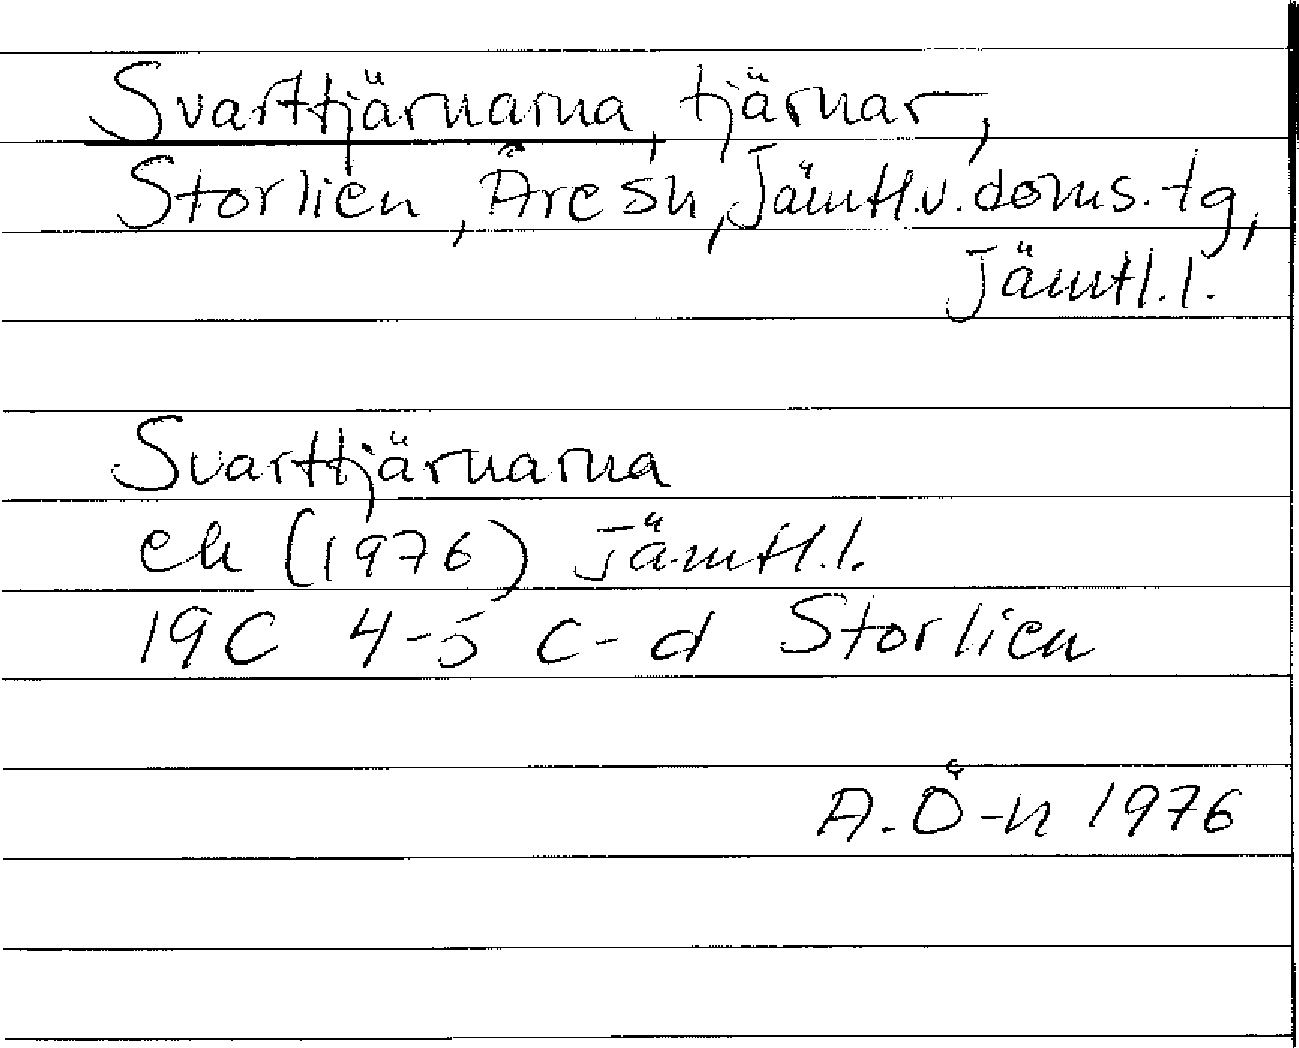 Svarttjärnarna, tjärnar,
Storlien, Åre sn, Jämtl.v.doms.tg,
Jämtl.l.
Svarttjärnarna
ek (1976) Jämtl.l.
19C 4-5 c-d Storlien
A.Ö-n 1976